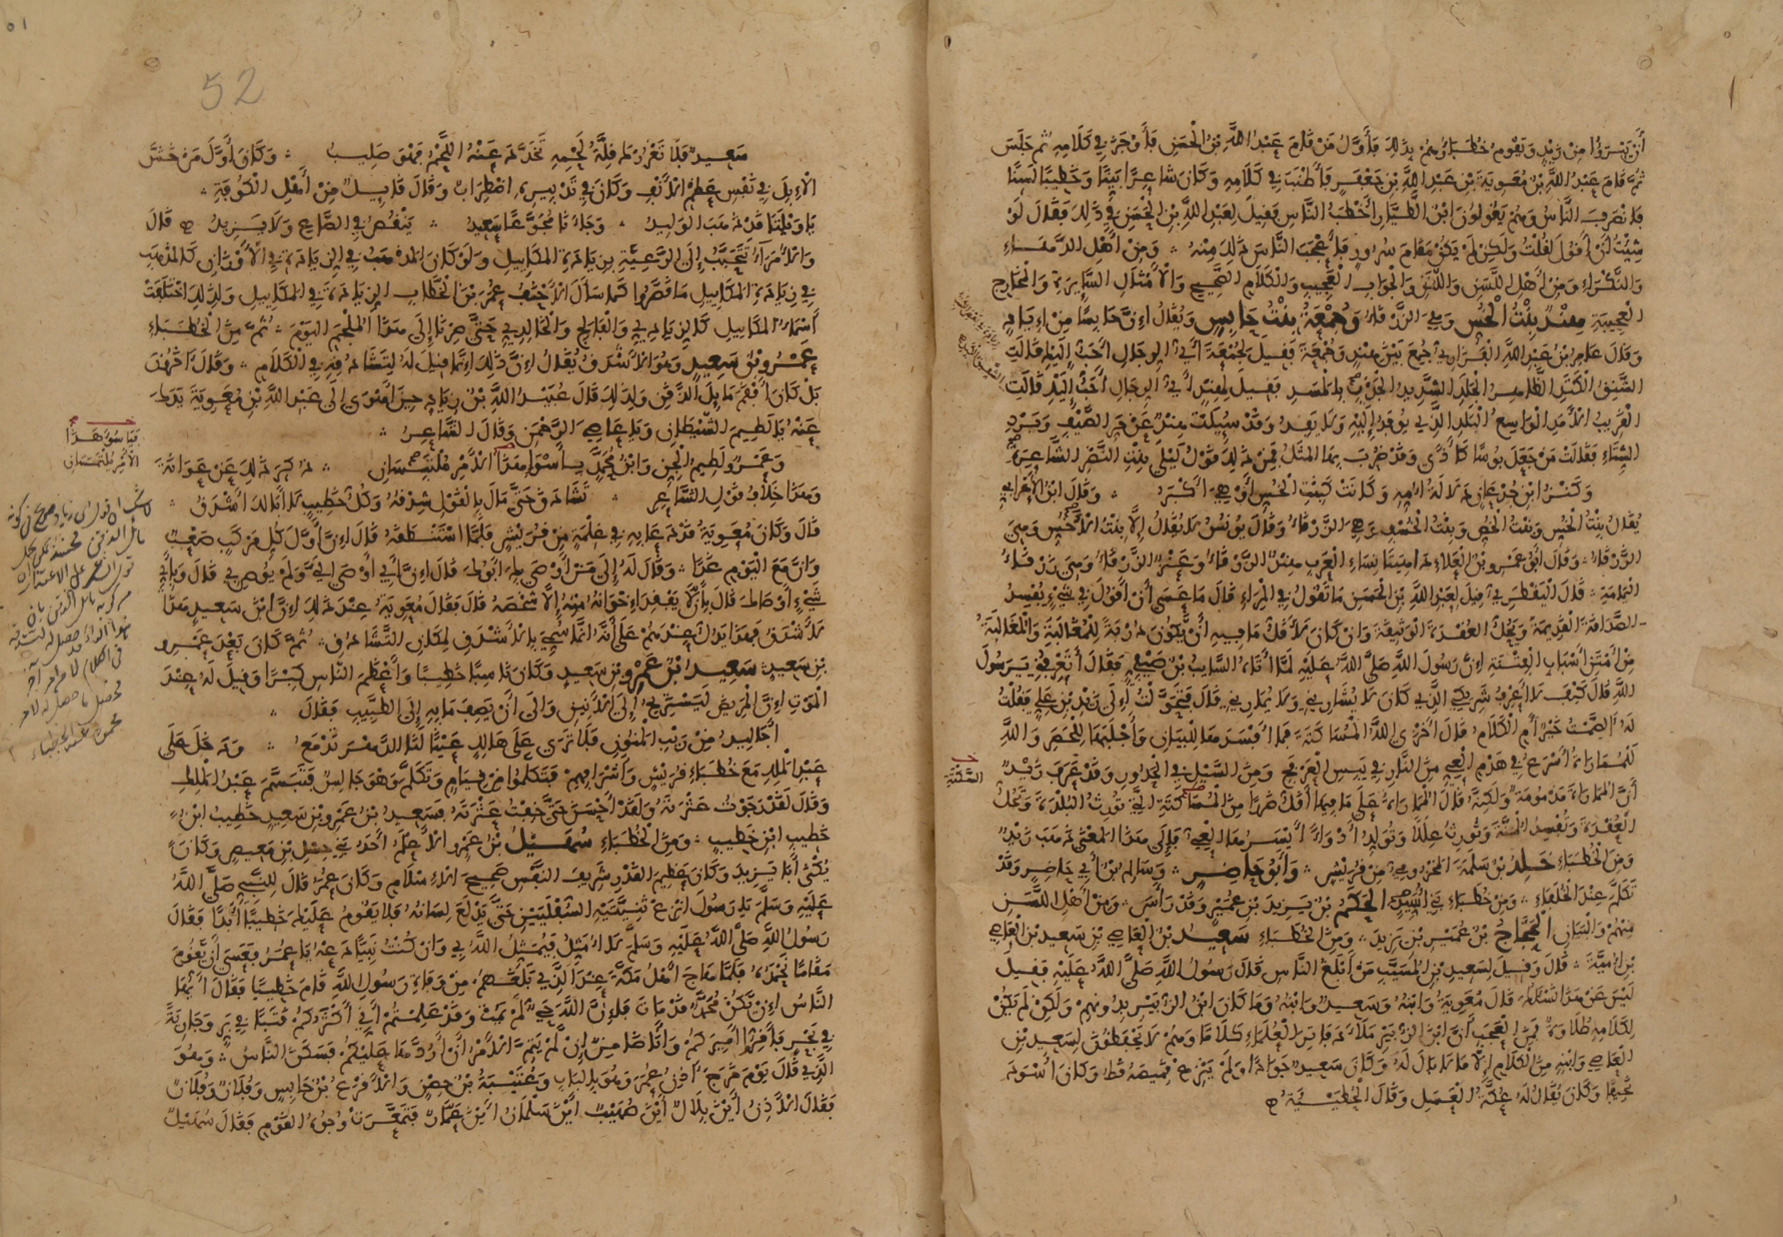 أن يتبرؤا من زيد ويقوم خطباؤهم بذلك فأول من قام عبد الله بن الحسن فأوجز في كلامه ثم جلس
ثم قام عبد الله بن معوية بن عبد الله بن جعفر فأطنب في كلامه وكان شاعرا بينا وخطيبا لسنا
فانصرف الناس وهم يقولون ابن الطيار أخطب الناس فقيل لعبد الله بن الحسن في ذلك فقال لو
شئت أن أقول لقلت ولكن لم يكن مقام سرور فأعجب الناس ذلك منه ومن أهل الدهاء
والنكراء ومن أهل اللسن واللقن والجواب العجيب والكلام الصحيح والأمثال السايرة والمخارج
العجيبة هند بنت الخس وهي الزرقاء وجمعة بنت حابس ويقال إن حابسا من إياد
وقال عامر بن عبد الله الفزاري جمع بين هند وجمعة فقيل لجمعة أي الرجال أحب إليك قالت
الشنق الكتد الظاهر الجلد الشديد الجذب بالمسد فقيل لهند أي الرجال أحب إليك قالت
القريب الأمد الواسع البلد الذي يوفد إليه ولا يفد وقد سئلت هند عن حر الصيف وبرد
الشتاء فقالت من جعل بوسا كأذى وقد ضرب بها المثل فمن ذلك قول ليلى بنت النضر الشاعرة
وكنز ابن جدعان دلالة أمه وكانت كبنت الخس أو هي أكبر وقال ابن الأعرابي
يقال بنت الخس وبنت الخص وبنت الخسف وهي الزرقاء وقال يونس لا يقال إلا بنت الأخس وهي
الزرقاء وقال أبو عمرو بن العلاء داهيتا نساء العرب هند الزرقاء وعنز الزرقاء وهي زرقاء
اليمامة قال اليقطري قيل لعبد الله بن الحسن ما تقول في المراء قال ما عسى أن أقول في شيء يفسد
الصداقة القديمة ويحل العقدة الوثيقة وإن كان لأقل ما فيه أن يكون دربة للمغالبة والمغالبة
من أمتن أسباب الفتنة إن رسول الله صلى الله عليه لما أتاه السايب بن صيفي فقال أتعرفني يرسول
الله قال كيف لا أعرف شريكي الذي كان لا يشاريني ولا يماريني قال فتحولت إلى زيد بن علي فقلت
له الصمت خير أم الكلام قال أخزى الله المساكتة فما أفسدها للبيان وأجلبها للحصر والله
للمماراة أسرع في هدم العي من النار في يبس العرفج ومن السيل في الحدور وقد عرف زيد
أن المماراة مذمومة ولكنه قال المماراة على ما فيها أقل ضررا من المساكتة التي تورث البلدة وتحل
العقدة وتفسد المنة وتورث عللا وتولد أدواء أيسرها العي فإلى هذا المعنى ذهب زيد
ومن الخطباء خلد بن سلمة المخزومي من قريش وأبو حاضر وسالم بن أبي حاضر وقد
تكلم عند الخلفاء ومن خطباء بني أسيد الحكم بن يزيد بن عمير وقد رأس ومن أهل اللسن
منهم والبيان الحجاج بن عمير بن يزيد ومن الخطباء سعيد بن العاصي بن سعيد بن العاصي
بن أمية قال وقيل لسعيد بن المسيب من أبلغ الناس قال رسول الله صلى الله عليه فقيل
ليس عن هذا نسألك قال معوية وابنه وسعيد وابنه وما كان ابن الزبير بدونهم ولكن لم يكن
لكلامه طلاوة فمن العجب أن ابن الزبير ملأ دفاتر العلماء كلاما وهم لا يحفظون لسعيد بن
العاصي وابنه من الكلام إلا ما لا بال له وكان سعيد جوادا ولم ينزع قميصه قط وكان أسود
نحيفا وكان يقال له عكة العسل وقال الحطيئة
السكتة
51
52
سعيد فلا تغررك قلة لحمه تخدد عنه اللحم فهو صليب وكان أول من خش
الإبل في نفس عظم الأنف وكان في تدبيره اضطراب وقال قايل من أهل الكوفة
يا ويلتا قد ذهب الوليد وجاءنا مجوعا سعيد ينقص في الصاع ولا يزيد قال
والأمراء تتحبب إلى الرعية بزيادة المكاييل ولو كان المذهب في الزيادة في الأوزان كالمذهب
في زيادة المكاييل ما قصروا كما سأل الأحنف عمر بن الخطاب الزيادة في المكاييل ولذلك اختلفت
أسماء المكاييل كالزيادي والفالج والخالدي حتى صرنا إلى هذا الملجم اليوم ثم من الخطباء
عمرو بن سعيد وهو الأشدق يقال إن ذلك إنما قيل له لتشادقه في الكلام وقال آخرون
بل كان أفقم مايل الذقن ولذلك قال عبيد الله بن زياد حين أهوى إلى عبد الله بن معوية يدك
عنه يا لطيم الشيطان ويا عاصي الرحمن وقال الشاعر
وعمرو لطيم الجن وابن محمد بأسوأ هذا الأمر ملتبسان ذكر ذلك عن عوانة
وهذا خلاف قول الشاعر تشادق حتى مال بالقول شدقه وكل خطيب لا أبا لك أشدق
قال وكان معوية قد دعا به في غلمة من قريش فلما استنطقه قال إن أول كل مركب صعب
وإن مع اليوم غدا وقال له إلى من أوصى بك أبوك قال إن أبي أوصى إلي ولم يوص بي قال وبأي
شيء أوصاك قال بألا يفقد إخوانه منه إلا شخصه قال فقال معوية عند ذلك إن ابن سعيد هذا
لأشدق فهذا يدل عندهم على أنه إنما سمي بالأشدق لمكان التشادق ثم كان بعد عمرو
بن سعيد سعيد بن عمرو بن سعيد وكان ناسبا خطيبا وأعظم الناس كبرا وقيل له عند
الموت إن المريض ليستريح إلى الأنين وإلى أن يصف ما به إلى الطبيب فقال
أجاليد من ريب المنون فلا ترى على هالك عينا لنا الدهر تدمع ودخل على
عبد الملك مع خطباء قريش وأشرافهم فتكلموا من قيام وتكلم وهو جالس فتبسم عبد الملك
وقال لقد رجوت عثرته ولقد أحسن حتى خفت عثرته فسعيد بن عمرو بن سعيد خطيب ابن
خطيب ابن خطيب ومن الخطباء سهيل بن عمرو الأعلم أحد بني حسل بن معيص وكان
يكنى أبا يزيد وكان عظيم القدر شريف النفس صحيح الإسلام وكان عمر قال للنبي صلى الله
عليه وسلم يا رسول انزع ثنيتيه السفليين حتى يدلع لسانه فلا يقوم عليك خطيبا أبدا فقال
رسول الله صلى الله عليه وسلم لا أمثل فيمثل الله بي وإن كنت نبيا دعه يا عمر فعسى أن يقوم
مقاما تحمده فلما هاج أهل مكة عند الذي بلغهم من وفاة رسول الله قام خطيبا فقال أيها
الناس إن يكن محمد قد مات فإن الله حي لم يمت وقد علمتم أني أكثركم قتبا في بر وجارية
في بحر فأقروا أميركم وأنا ضامن إن لم يتم الأمر أن أردها عليكم فسكن الناس وهو
الذي قال يوم خرج آذن عمر وهو بالباب وعيينة بن حصن والأقرع بن حابس وفلان وفلان
فقال الآذن أين بلال أين صهيب أين سلمان أين عمار فتمعرت وجوه القوم فقال سهيل
فباسوء هذا
الأمر يلتمسان